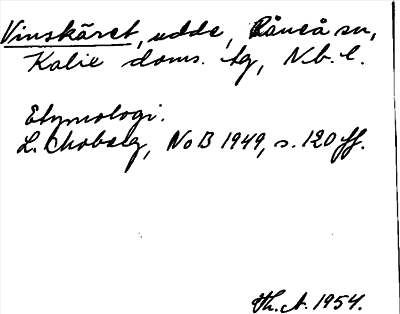 Vinskäret, udde, Råneå sn,
Kalix doms. tg, N.b.l.
Etymologi.
L. Moberg, NoB 1949, s. 120 ff.
Th. A. 1954.